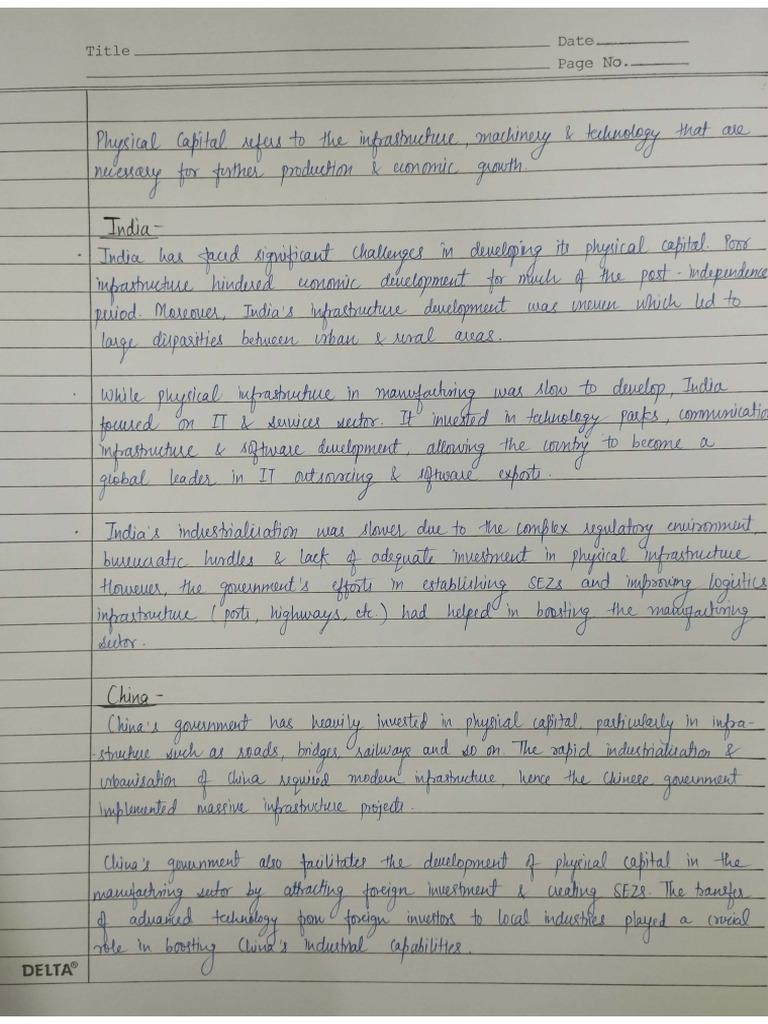 Title
Date
Page No.
Physical Capital refers to the infrastructure, machinery & technology that are
necessary for further production & economic growth.
India -
India has faced significant challenges in developing its physical capital. Poor
infrastructure hindered economic development for much of the post-independence
period. Moreover, India's infrastructure development was uneven which led to
large disparities between urban & rural areas.
While physical infrastructure in manufacturing was slow to develop, India
focused on IT & services sector. It invested in technology parks, communication
infrastructure & software development, allowing the country to become a
global leader in IT outsourcing & software exports.
India's industrialisation was slower due to the complex regulatory environment,
bureucratic hurdles & lack of adequate investment in physical infrastructure
However, the government's efforts in establishing SEZs and improving logistics
infrastructure (ports, highways, etc.) had helped in boosting the manufacturing
sector.
China -
China's government has heavily invested in physical capital, particularly in infra-
-structure such as roads, bridges, railways and so on. The rapid industrialisation &
urbanisation of China required modern infrastructure, hence the Chinese government
implemented massive infrastructure projects.
China's government also facilitates the development of physical capital in the
manufacturing sector by attracting foreign investment & creating SEZs. The transfer
of advanced technology from foreign investors to local industries played a crucial
role in boosting China's industrial capabilities.
DELTA®